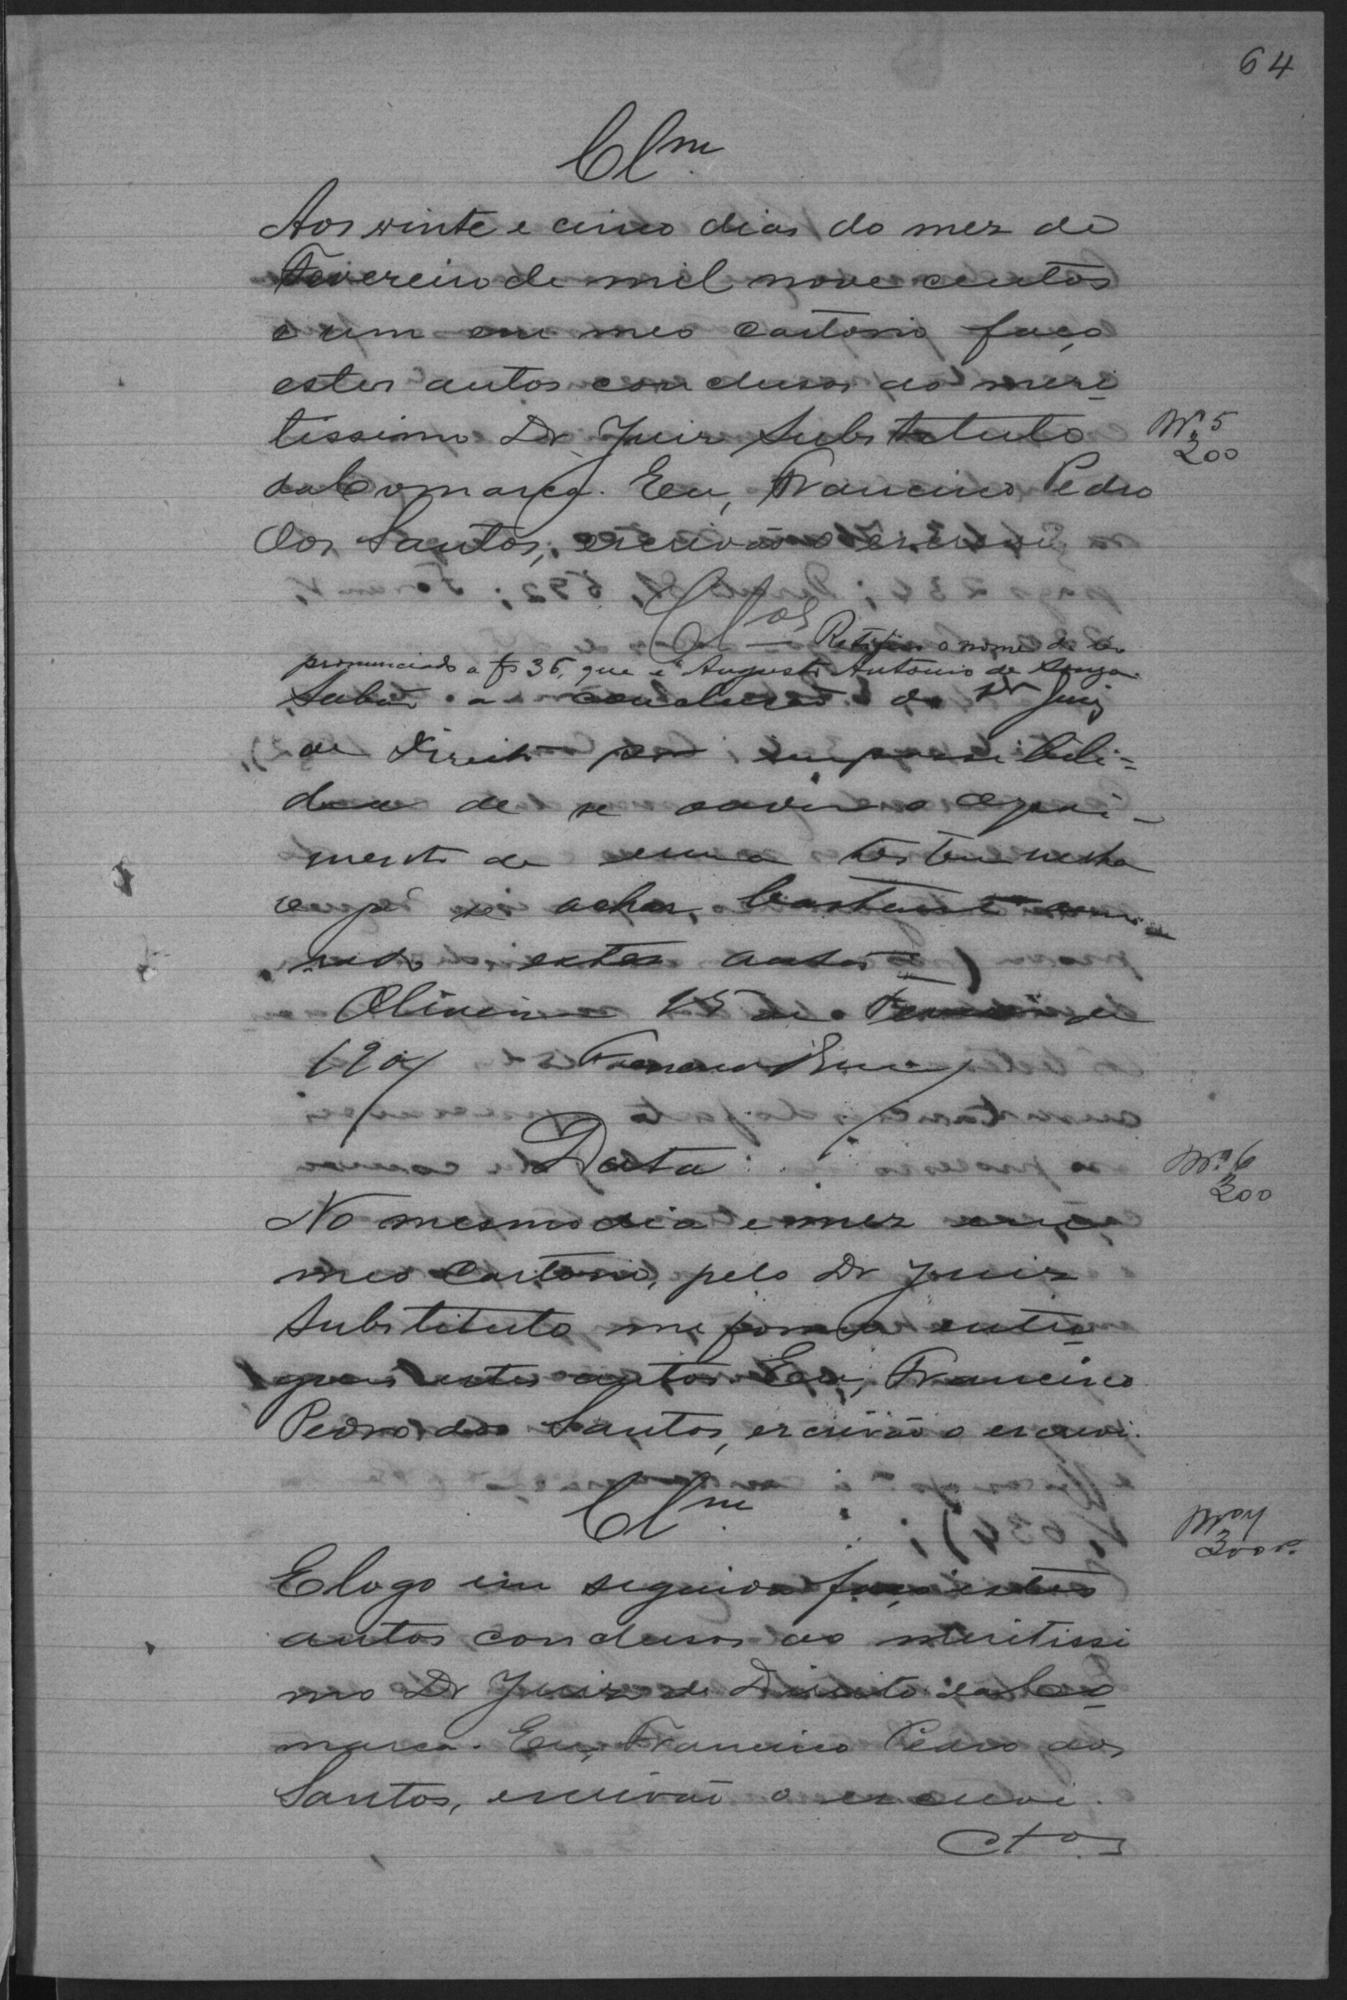 64
Clm.
Aos vinte e cinco dias do mez de
Fevereiro de mil nove centos
e um em meo cartorio faço
estes autos conclusos ao meri
tissimo Dr Juiz Substituto
da Comarca. Eu, Francino Pedro
dos Santos, escrivão o escrevi
Nº 5
200
Clos
Ratifico o nome do réo
pronunciado a fs 36, que é Augusto Antonio de Souza.
Subão a conclusão do Dr Juiz
de Direito por impossibili-
dade de se ouvir o depoi-
mento de uma testemunha
e já se achar bastante
estes autos
15 de Fevereiro de
1901
Data
No mesmo dia e mez em
meo cartorio, pelo Dr Juiz
Substituto me foram entre
gues estes autos. Eu, Francino
Pedro dos Santos, escrivão o escrevi.
Nº 6
200
Clm.
E logo em seguida faço estes
autos conclusos ao meritissi
mo Dr Juiz de Direito da Co
marca. Eu, Francino Pedro dos
Santos, escrivão o escrevi.